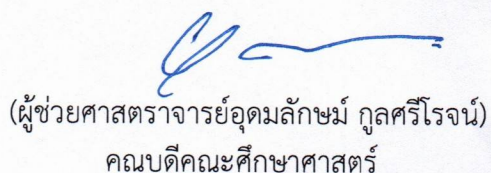 (ผู้ช่วยศาสตราจารย์อุดมลักษม์ กูลศรีโรจน์)
คณบดีคณะศึกษาศาสตร์